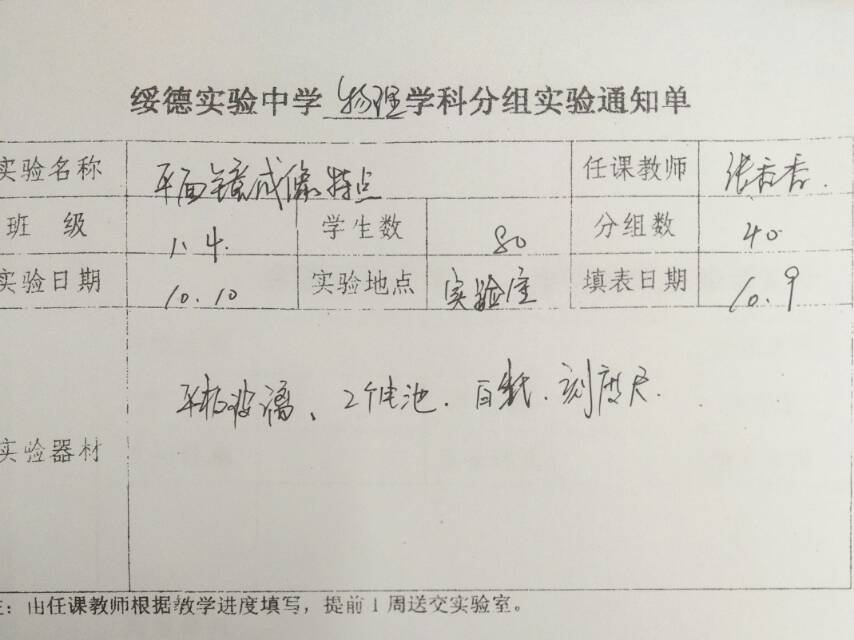 绥德实验中学 物理 学科分组实验通知单
实验名称 平面镜成像特点 任课教师 张香香.
班 级 1.4. 学生数 80 分组数 40
实验日期 10.10 实验地点 实验室 填表日期 10.9
平板玻璃、2个电池.白纸.刻度尺.
实验器材
注：由任课教师根据教学进度填写，提前1周送交实验室。